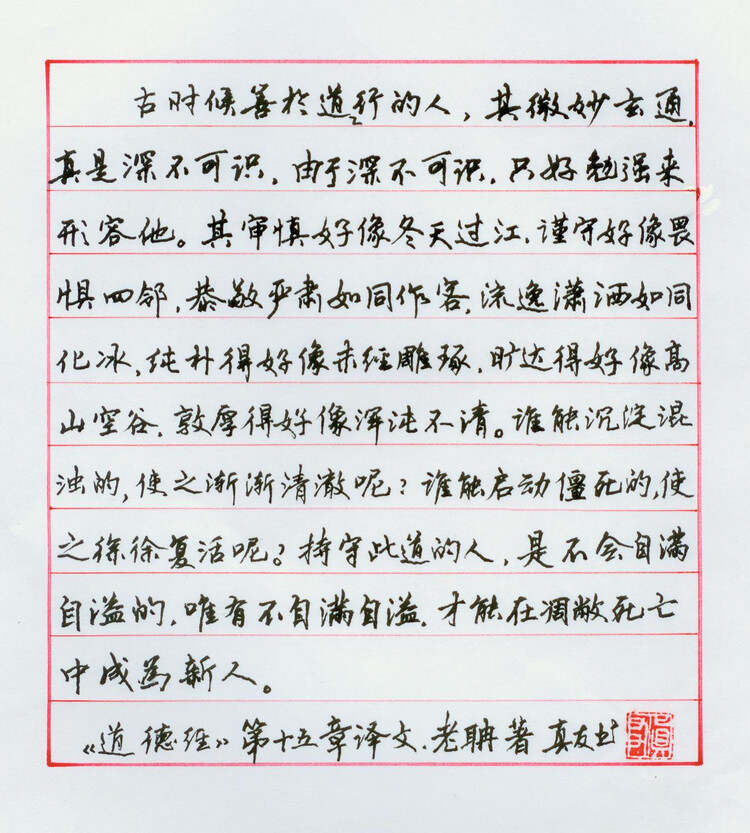 古时候善於道行的人，其微妙玄通，
真是深不可识，由于深不可识，只好勉强来
形容他。其审慎好像冬天过江，谨守好像畏
惧四邻，恭敬严肃如同作客，流逸潇洒如同
化冰，纯朴得好像未经雕琢，旷达得好像高
山空谷，敦厚得好像浑沌不清。谁能沉淀混
浊的，使之渐渐清澈呢？谁能启动僵死的，使
之徐徐复活呢？持守此道的人，是不会自满
自溢的，唯有不自满自溢，才能在凋敝死亡
中成为新人。
《道德经》第十五章译文，老聃著 真友书